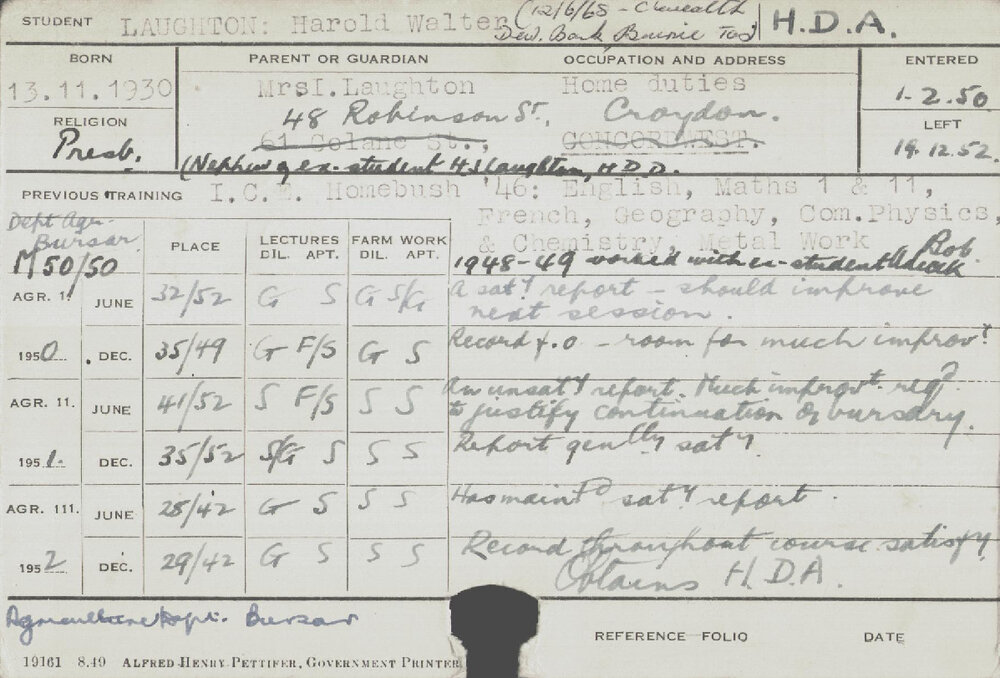 STUDENT LAUGHTON: Harold Walter (12/6/68 - C'wealth
Dev. Bank, Burnie Tas) H.D.A.
BORN PARENT OR GUARDIAN OCCUPATION AND ADDRESS ENTERED
13.11.1930 MrsI.Laughton Home duties 1-2.50
RELIGION 48 Robinson St., Croydon. LEFT
Presb. 61 Colane St., CONCORD WEST. 19.12.52.
(Nephew of ex-student H.S Laughton, H.D.D.
PREVIOUS TRAINING I.C.E. Homebush '46: English, Maths 1 & 11,
French, Geography, Com.Physics,
& Chemistry, Metal Work
Dept Agr. Bursar
M50/50
1948-49 worked with ex-student Bob
PLACE LECTURES FARM WORK
DIL. APT. DIL. APT.
AGR. 1. JUNE 32/52 G S G S/G A sat'y report - should improve
next session.
1950 . DEC. 35/49 G F/S G S Record f.o - room for much improv't
AGR. 11. JUNE 41/52 S F/S S S An unsat'y report. Much improv't req'd
to justify continuation of bursary.
1951. DEC. 35/52 S/G S S S Report gen'lly sat'y.
AGR. 111. JUNE 28/42 G S S S Has maint'd sat'y report.
1952 DEC. 29/42 G S S S Record throughout course satisf'y.
Obtains H.D.A.
Agriculture Dept. Bursar
REFERENCE FOLIO DATE
19161 8.49 ALFRED HENRY PETTIFER, GOVERNMENT PRINTER